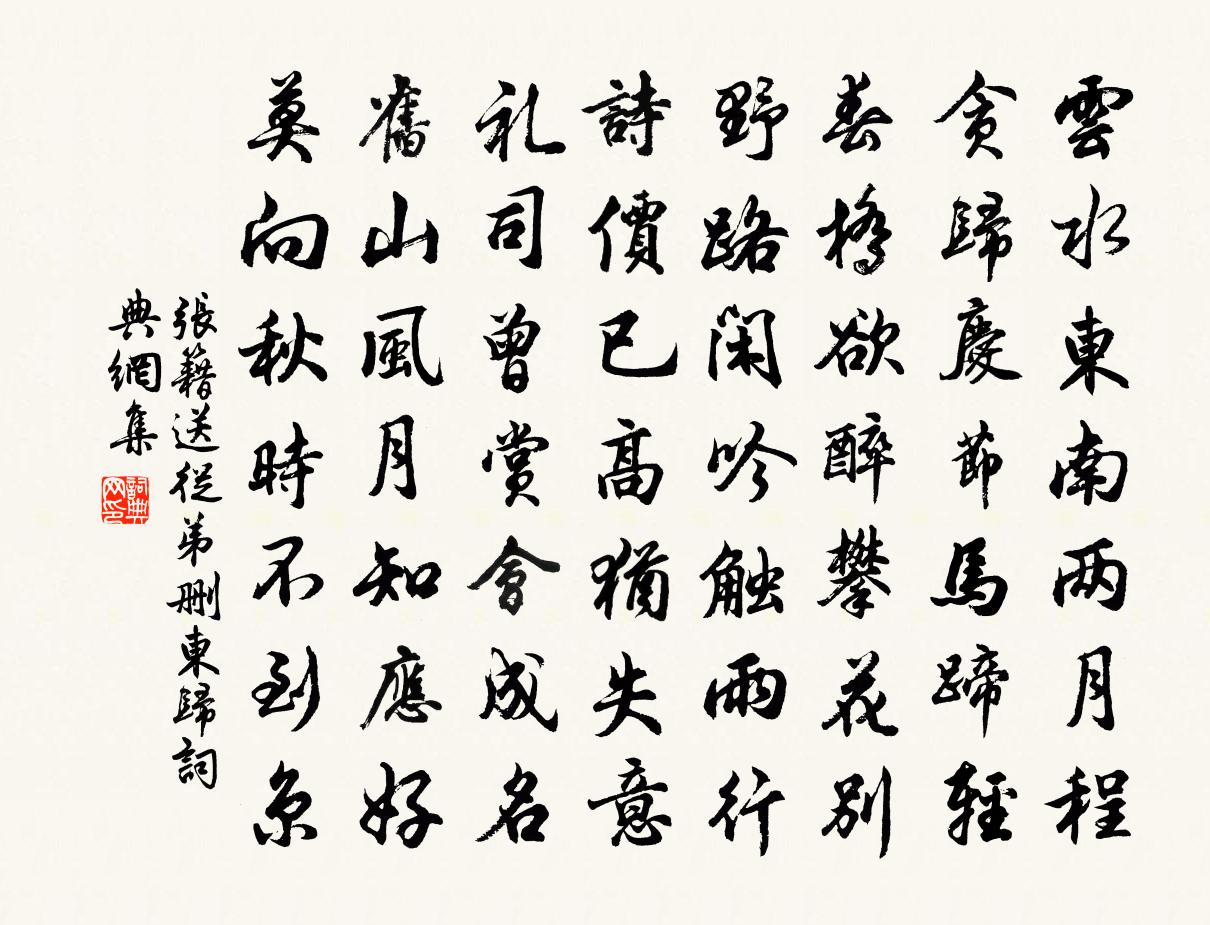 雲水東南兩月程
貪歸慶節馬蹄輕
春橋欲醉攀花別
野路閑吟觸雨行
詩價已高猶失意
礼司曾賞會成名
舊山風月知應好
莫向秋時不到京
張籍送從弟删東歸詞
典網集
詞典网印